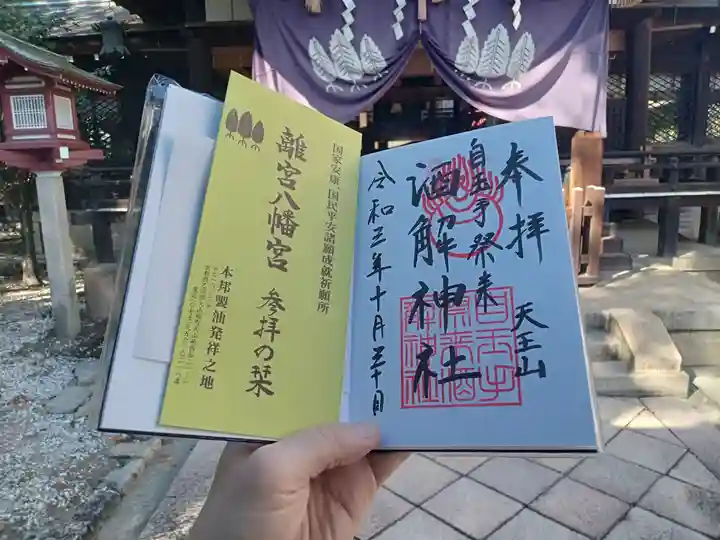 奉拝
天王山
自玉手祭来
酒解神社
令和三年十月三十日
国家安康、国民平安諸願成就祈願所
離宮八幡宮 参拝の栞
本邦製油発祥之地